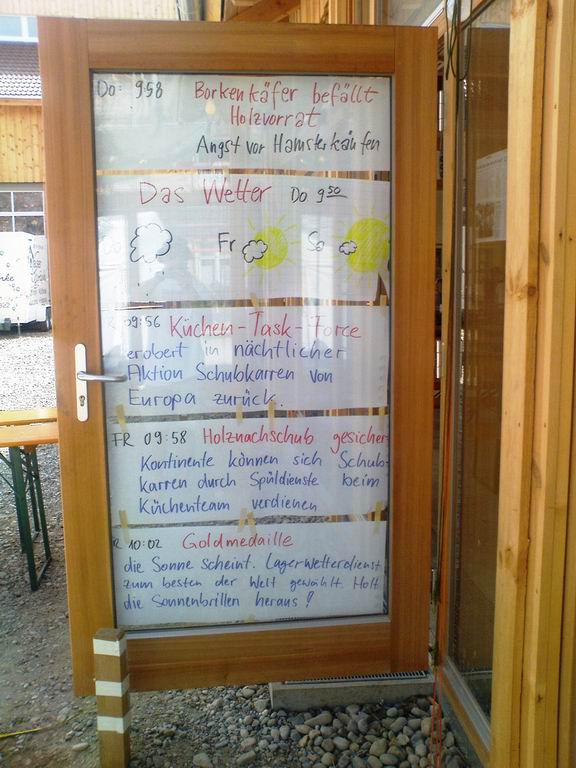 Do: 9:58 Borkenkäfer befällt
Holzvorrat
Angst vor Hamsterkäufen
Das Wetter Do 9:50
Do Fr So
09:56 Küchen-Task-Force
erobert in nächtlicher
Aktion Schubkarren von
Europa zurück.
FR 09:58 Holznachschub gesichert
Kontinente können sich Schub-
karren durch Spüldienste beim
Küchenteam verdienen
10:02 Goldmedaille
die Sonne scheint. Lagerwetterdienst
zum besten der Welt gewählt. Holt
die Sonnenbrillen heraus!